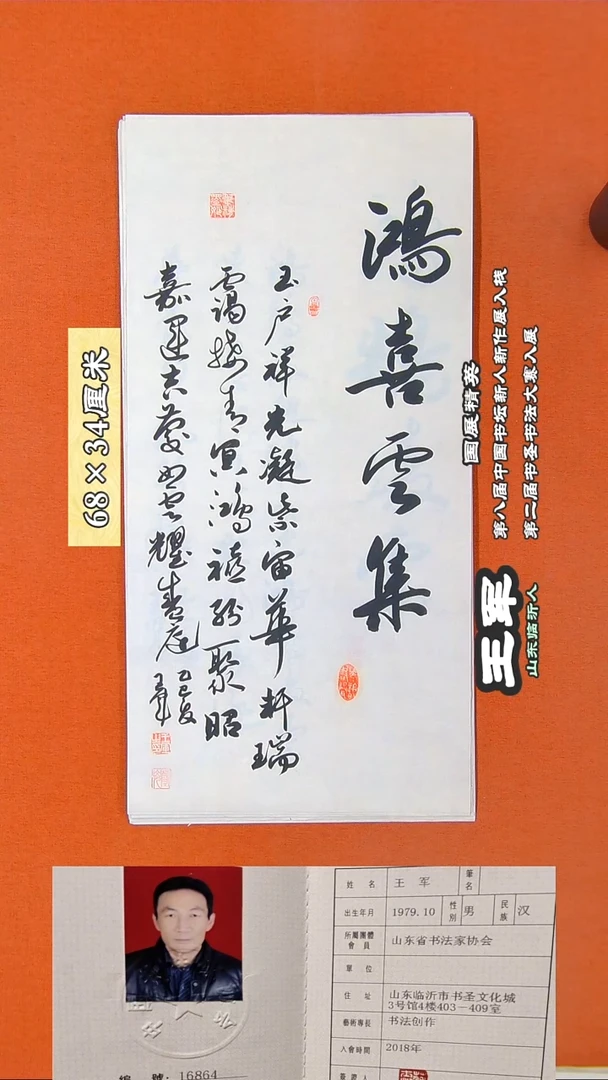 鴻喜雲集
玉户祥光凝紫宙華軒瑞
靄接青冥鴻禧紛聚昭
嘉運吉慶如雲耀春庭
乙巳夏
王軍
68×34厘米
国展精英
第八届中国书坛新人新作展入栈
第二届书圣书法大赛入展
王军
山东临沂人
姓 名 王 军 筆名
出生年月 1979.10 性別 男 民族 汉
所屬團體會員 山东省书法家协会
單 位
住 址 山东临沂市书圣文化城3号馆4楼403—409室
藝術專長 书法创作
入會時間 2018年
簽證人
編 號：16864